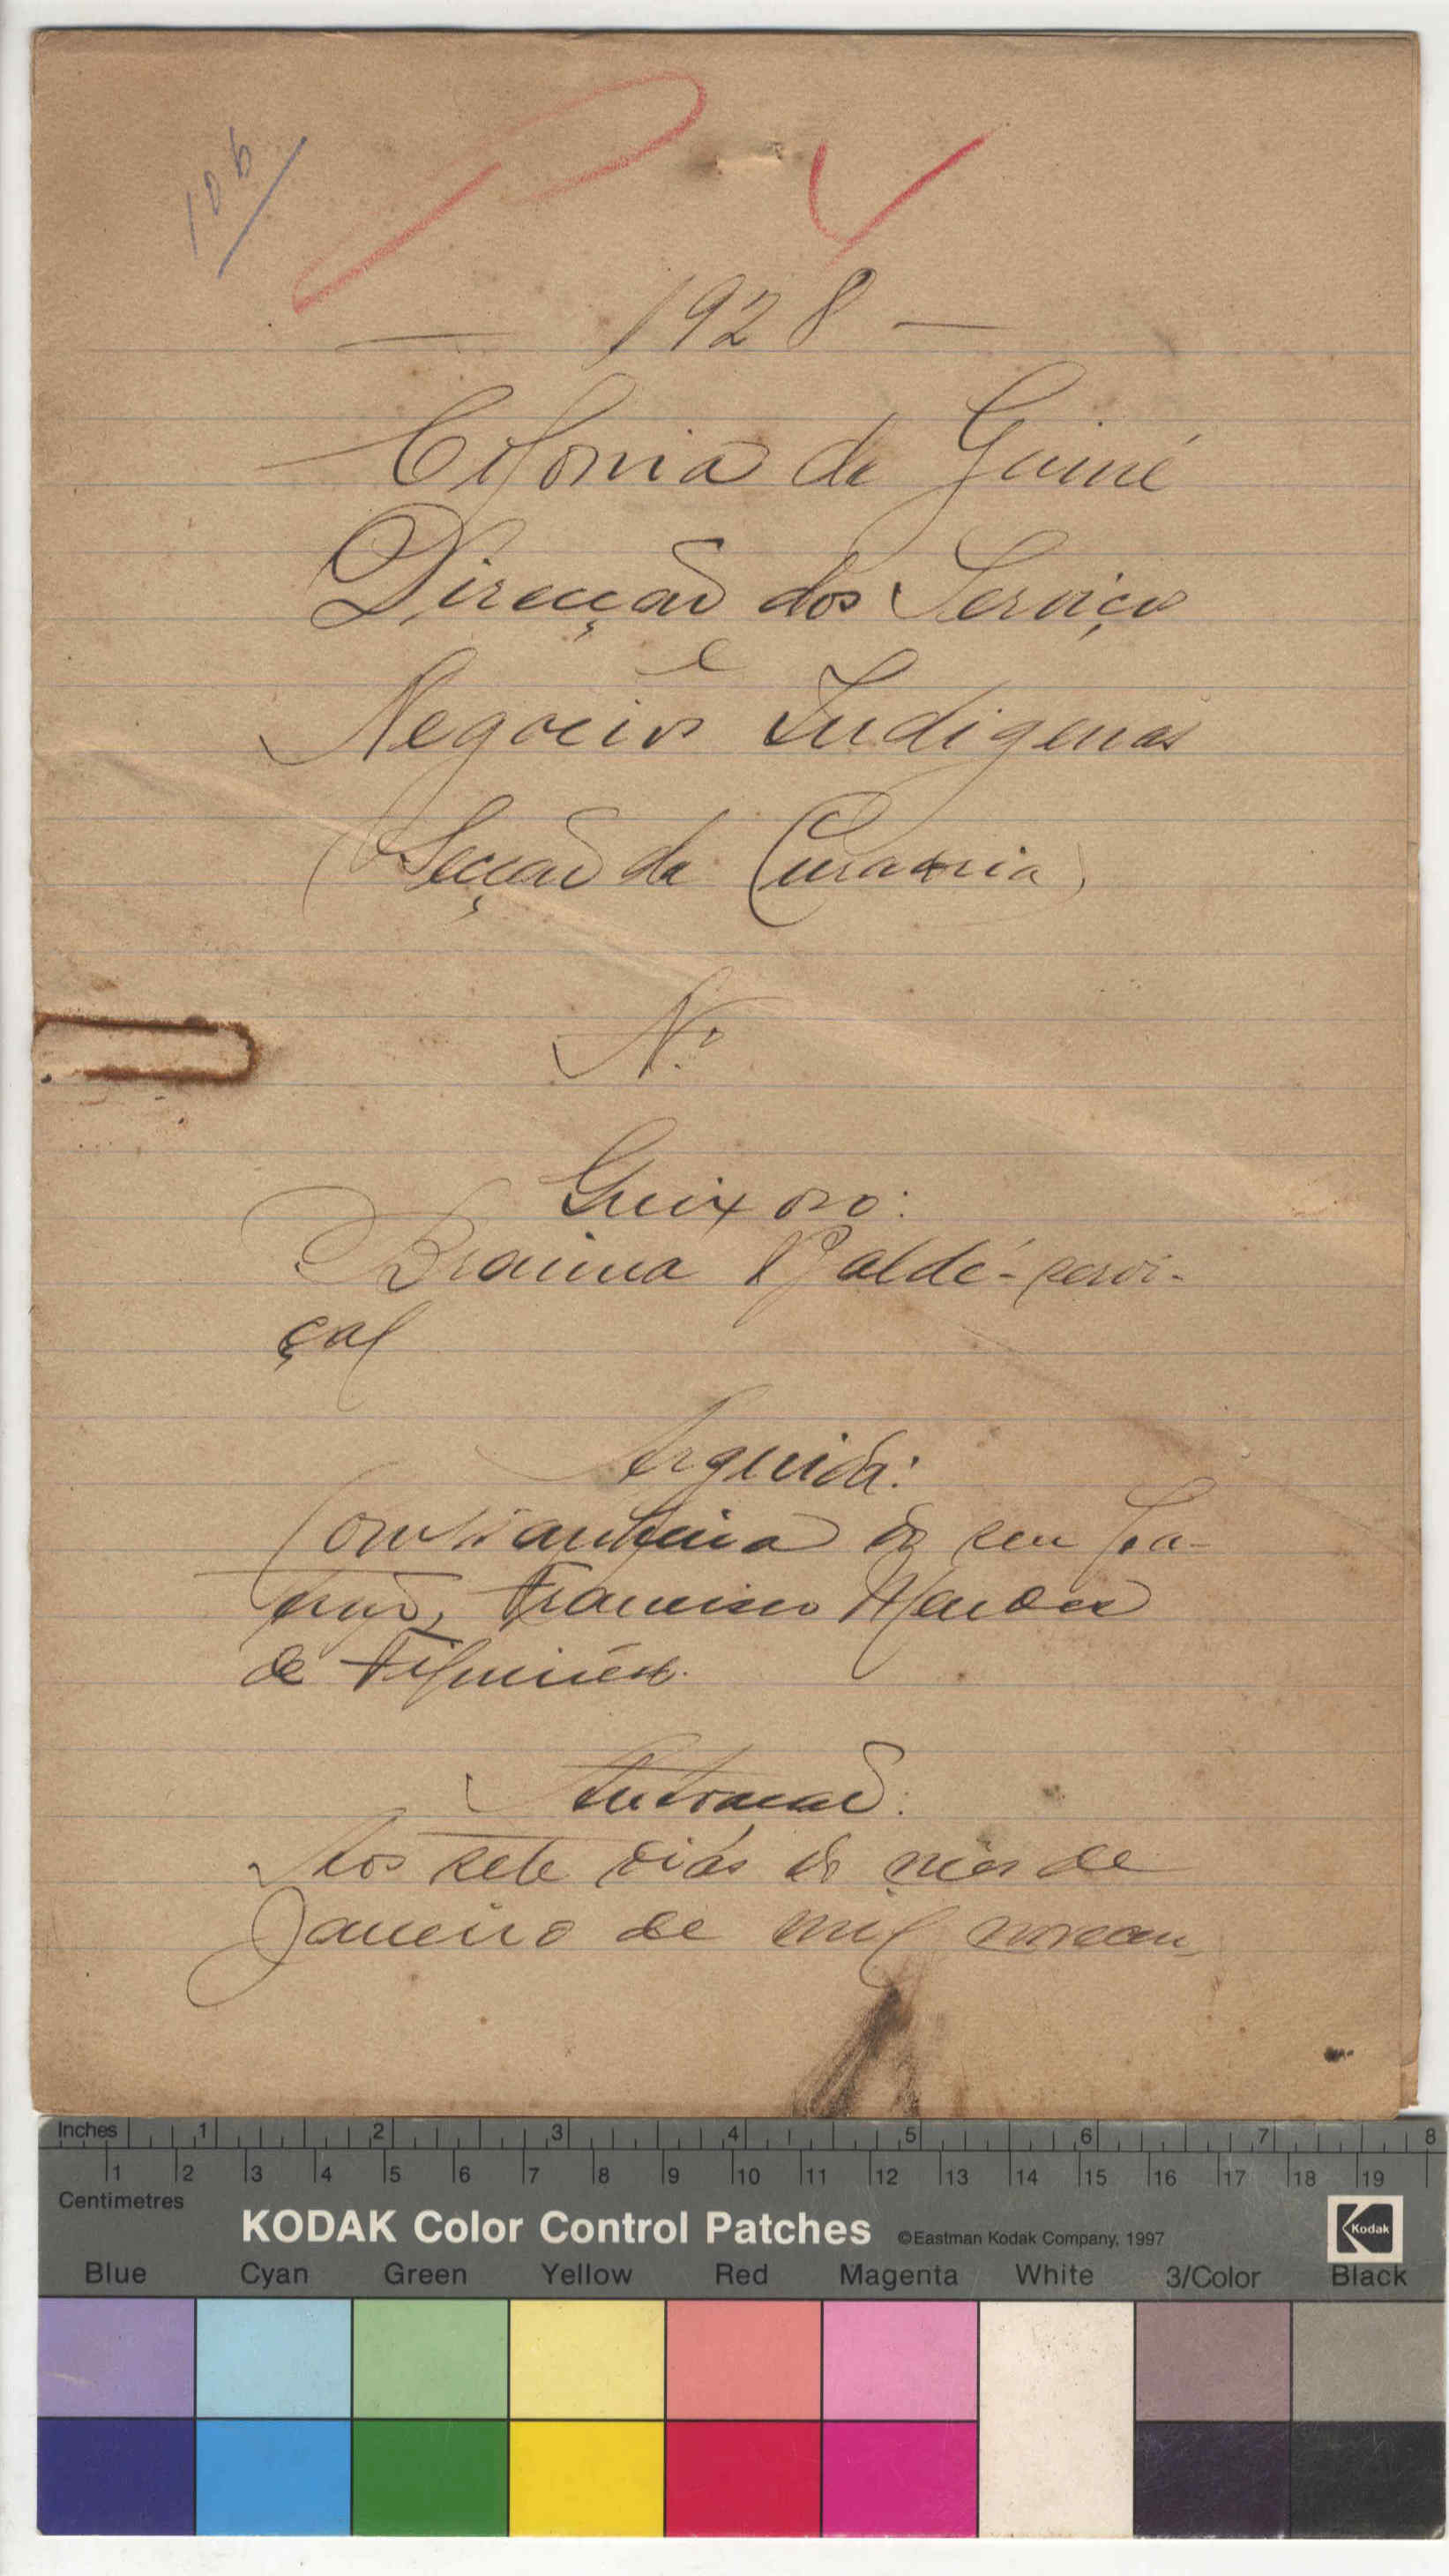 106
— 1928 —
Colonia da Guiné
Direcção dos Serviços
e
Negocios Indigenas
(Secção da Curadoria)
N.º
Queixoso:
Braima Baldé - servi-
çal
Arguida:
Constantina do seu pa-
trão, Francisco Mendes
de
Autoação:
Aos sete dias do mês de
Janeiro de mil novecen-
Inches 1 2 3 4 5 6 7 8
1 2 3 4 5 6 7 8 9 10 11 12 13 14 15 16 17 18 19
Centimetres
KODAK Color Control Patches ©Eastman Kodak Company, 1997 Kodak
Blue Cyan Green Yellow Red Magenta White 3/Color Black